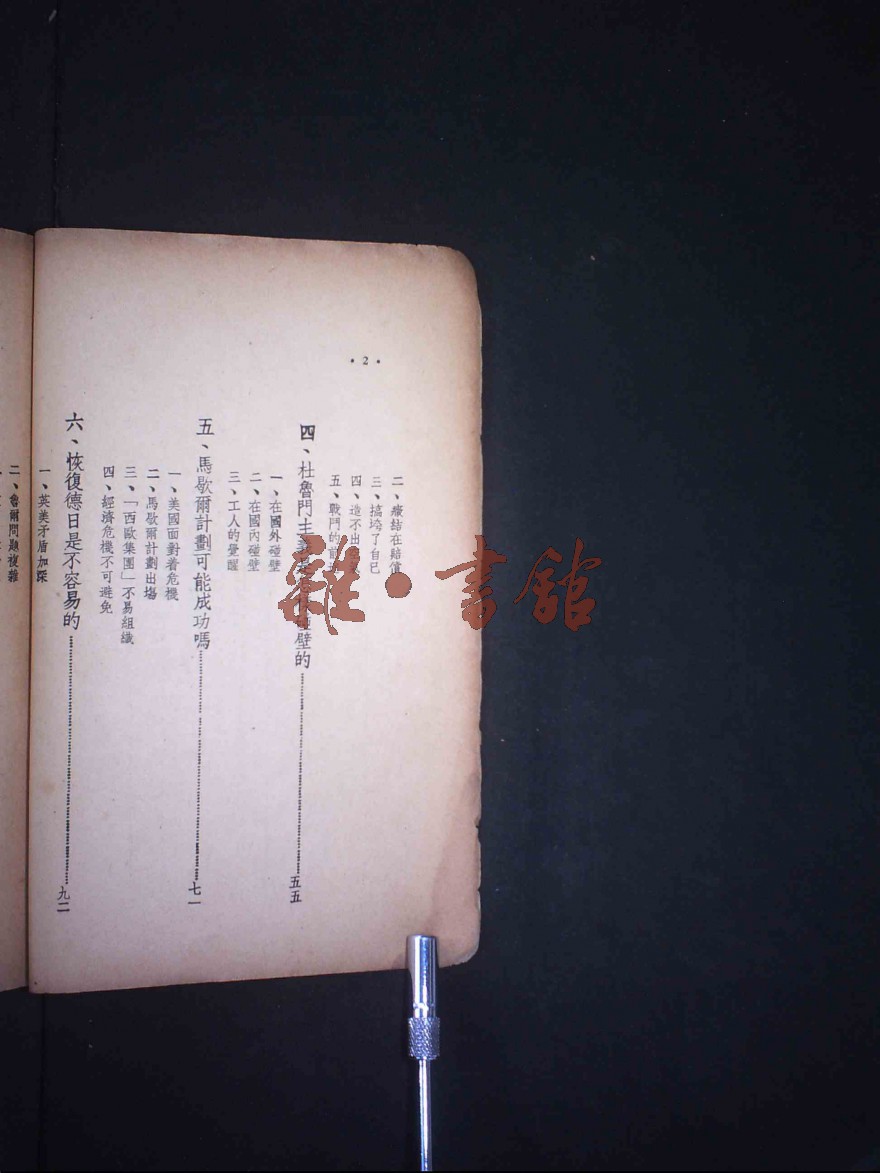 • 2 •
二、癥結在賠償
三、搞垮了自己
四、造不出
五、戰鬥的
四、杜魯門主義是 碰壁的……五五
一、在國外碰壁
二、在國內碰壁
三、工人的覺醒
五、馬歇爾計劃可能成功嗎……七一
一、美國面對着危機
二、馬歇爾計劃出場
三、「西歐集團」不易組織
四、經濟危機不可避免
六、恢復德日是不容易的……九二
一、英美矛盾加深
二、魯爾問題複雜
雜·書館